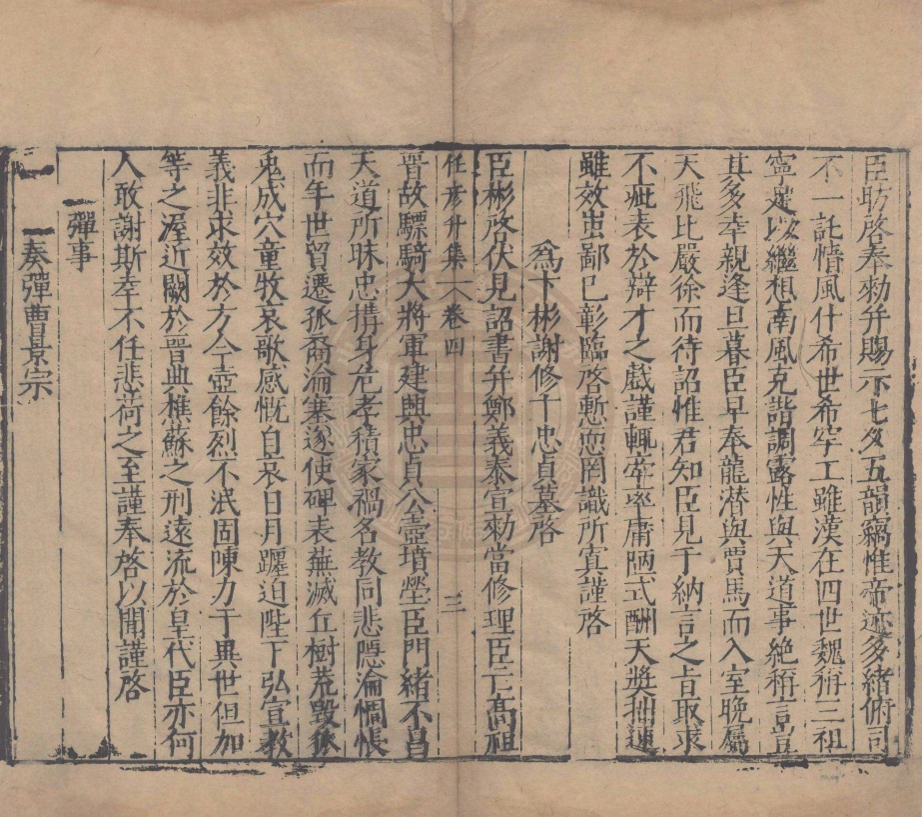 臣昉啓奉勑并賜示七夕五韻竊惟帝迹多緒俯司
不一託情風什希世希罕工雖漢在四世魏稱三祖
寧足以繼想南風克諧調露性與天道事絶稱言豈
其多幸親逢旦暮臣早奉龍潜與賈馬而入室晚屬
天飛比嚴徐而待詔惟君知臣見于納言之旨取求
不疵表於辯才之戲謹輒牽率庸陋式酬天奬拙速
雖效蚩鄙已彰臨啓慙恧罔識所寘謹啓
爲卞彬謝修卞忠貞墓啓
臣彬啓伏見詔書并鄭義泰宣勑當修理臣亡高祖
任彦升集 卷四 三
晉故驃騎大將軍建興忠貞公壼墳塋臣門緒不昌
天道所昧忠搆身危孝積家禍名教同悲隠淪惆悵
而年世貿遷孤裔淪塞遂使碑表蕪滅丘樹荒毀狐
兎成穴童牧哀歌感慨自哀日月躔迫陛下弘宣教
義非求效於方今壼餘烈不泯固陳力于異世但加
等之渥近闕於晉典樵蘇之刑遠流於皇代臣亦何
人敢謝斯幸不任悲荷之至謹奉啓以聞謹啓
彈事
奏彈曹景宗